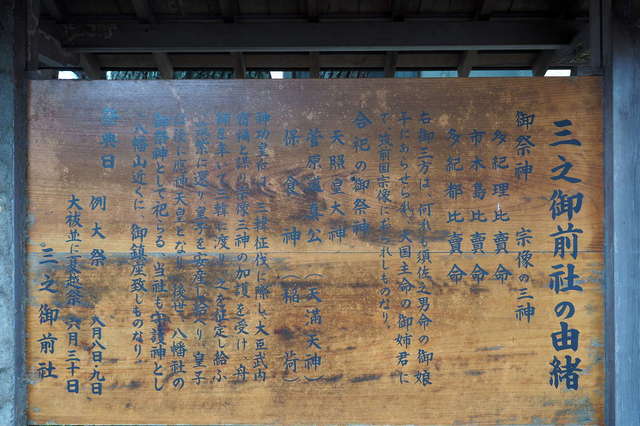 三之御前社の由緒
御祭神 宗像の三神
多紀理比賣命
市木島比賣命
多紀都比賣命
右御三方は、何れも須佐之男命の御娘
子にあらせられ、大国主命の御姉君に
て、筑前国宗像におられしものなり。
合祀の御祭神
天照皇大神
菅原道真公 (天満天神)
保食神 (稲荷)
神功皇后は、三韓征伐に際し、大臣武内
宿禰と謀り宗像三神の加護を受け、舟
師を率いて三韓に渡り、之を征定し給ふ
筑紫に還り皇子を安産し給へり、皇子
後に應神天皇となり、後世、八幡社の
御祭神として祀らる、当社も守護神とし
八幡山近くに、御鎮座致しものなり
祭典日
例大祭 八月八日・九日
大祓並に夏越祭 六月三十日
三之御前社